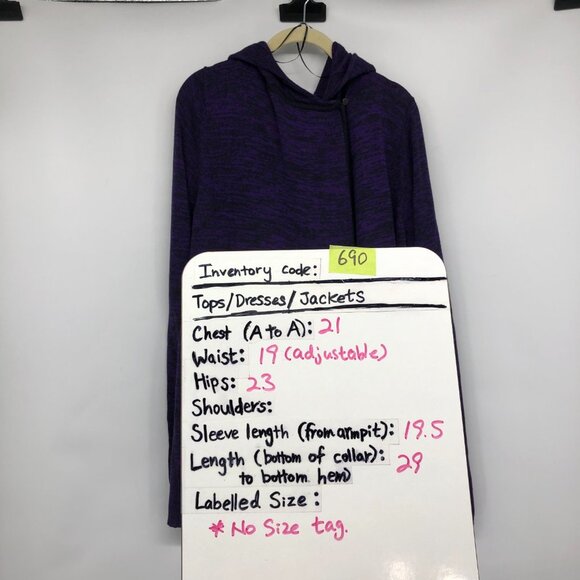 Inventory code: 690
Tops/Dresses/Jackets
Chest (A to A): 21
Waist: 19 (adjustable)
Hips: 23
Shoulders:
Sleeve length (from armpit): 19.5
Length (bottom of collar): 29
to bottom hem)
Labelled Size:
* No Size tag.